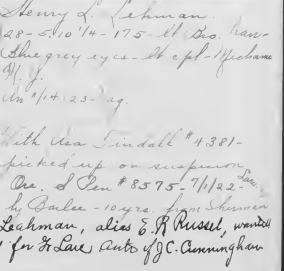 Henry L. Lehman.
28-5-10 1/4-175-lt Bro. hair-
Blue grey eyes-lt cpl-Mechanic
N. J.
An 9/14-23- ag.
With Asa Tindall #4381-
picked up on suspicion
Ore. S Pen #8575-7/1/22-Larc.
by Bailee-10 yrs. from Sherman
Leahman, alias E.R Russel, wanted
for Gr Larc auto of J.C. Cunningham